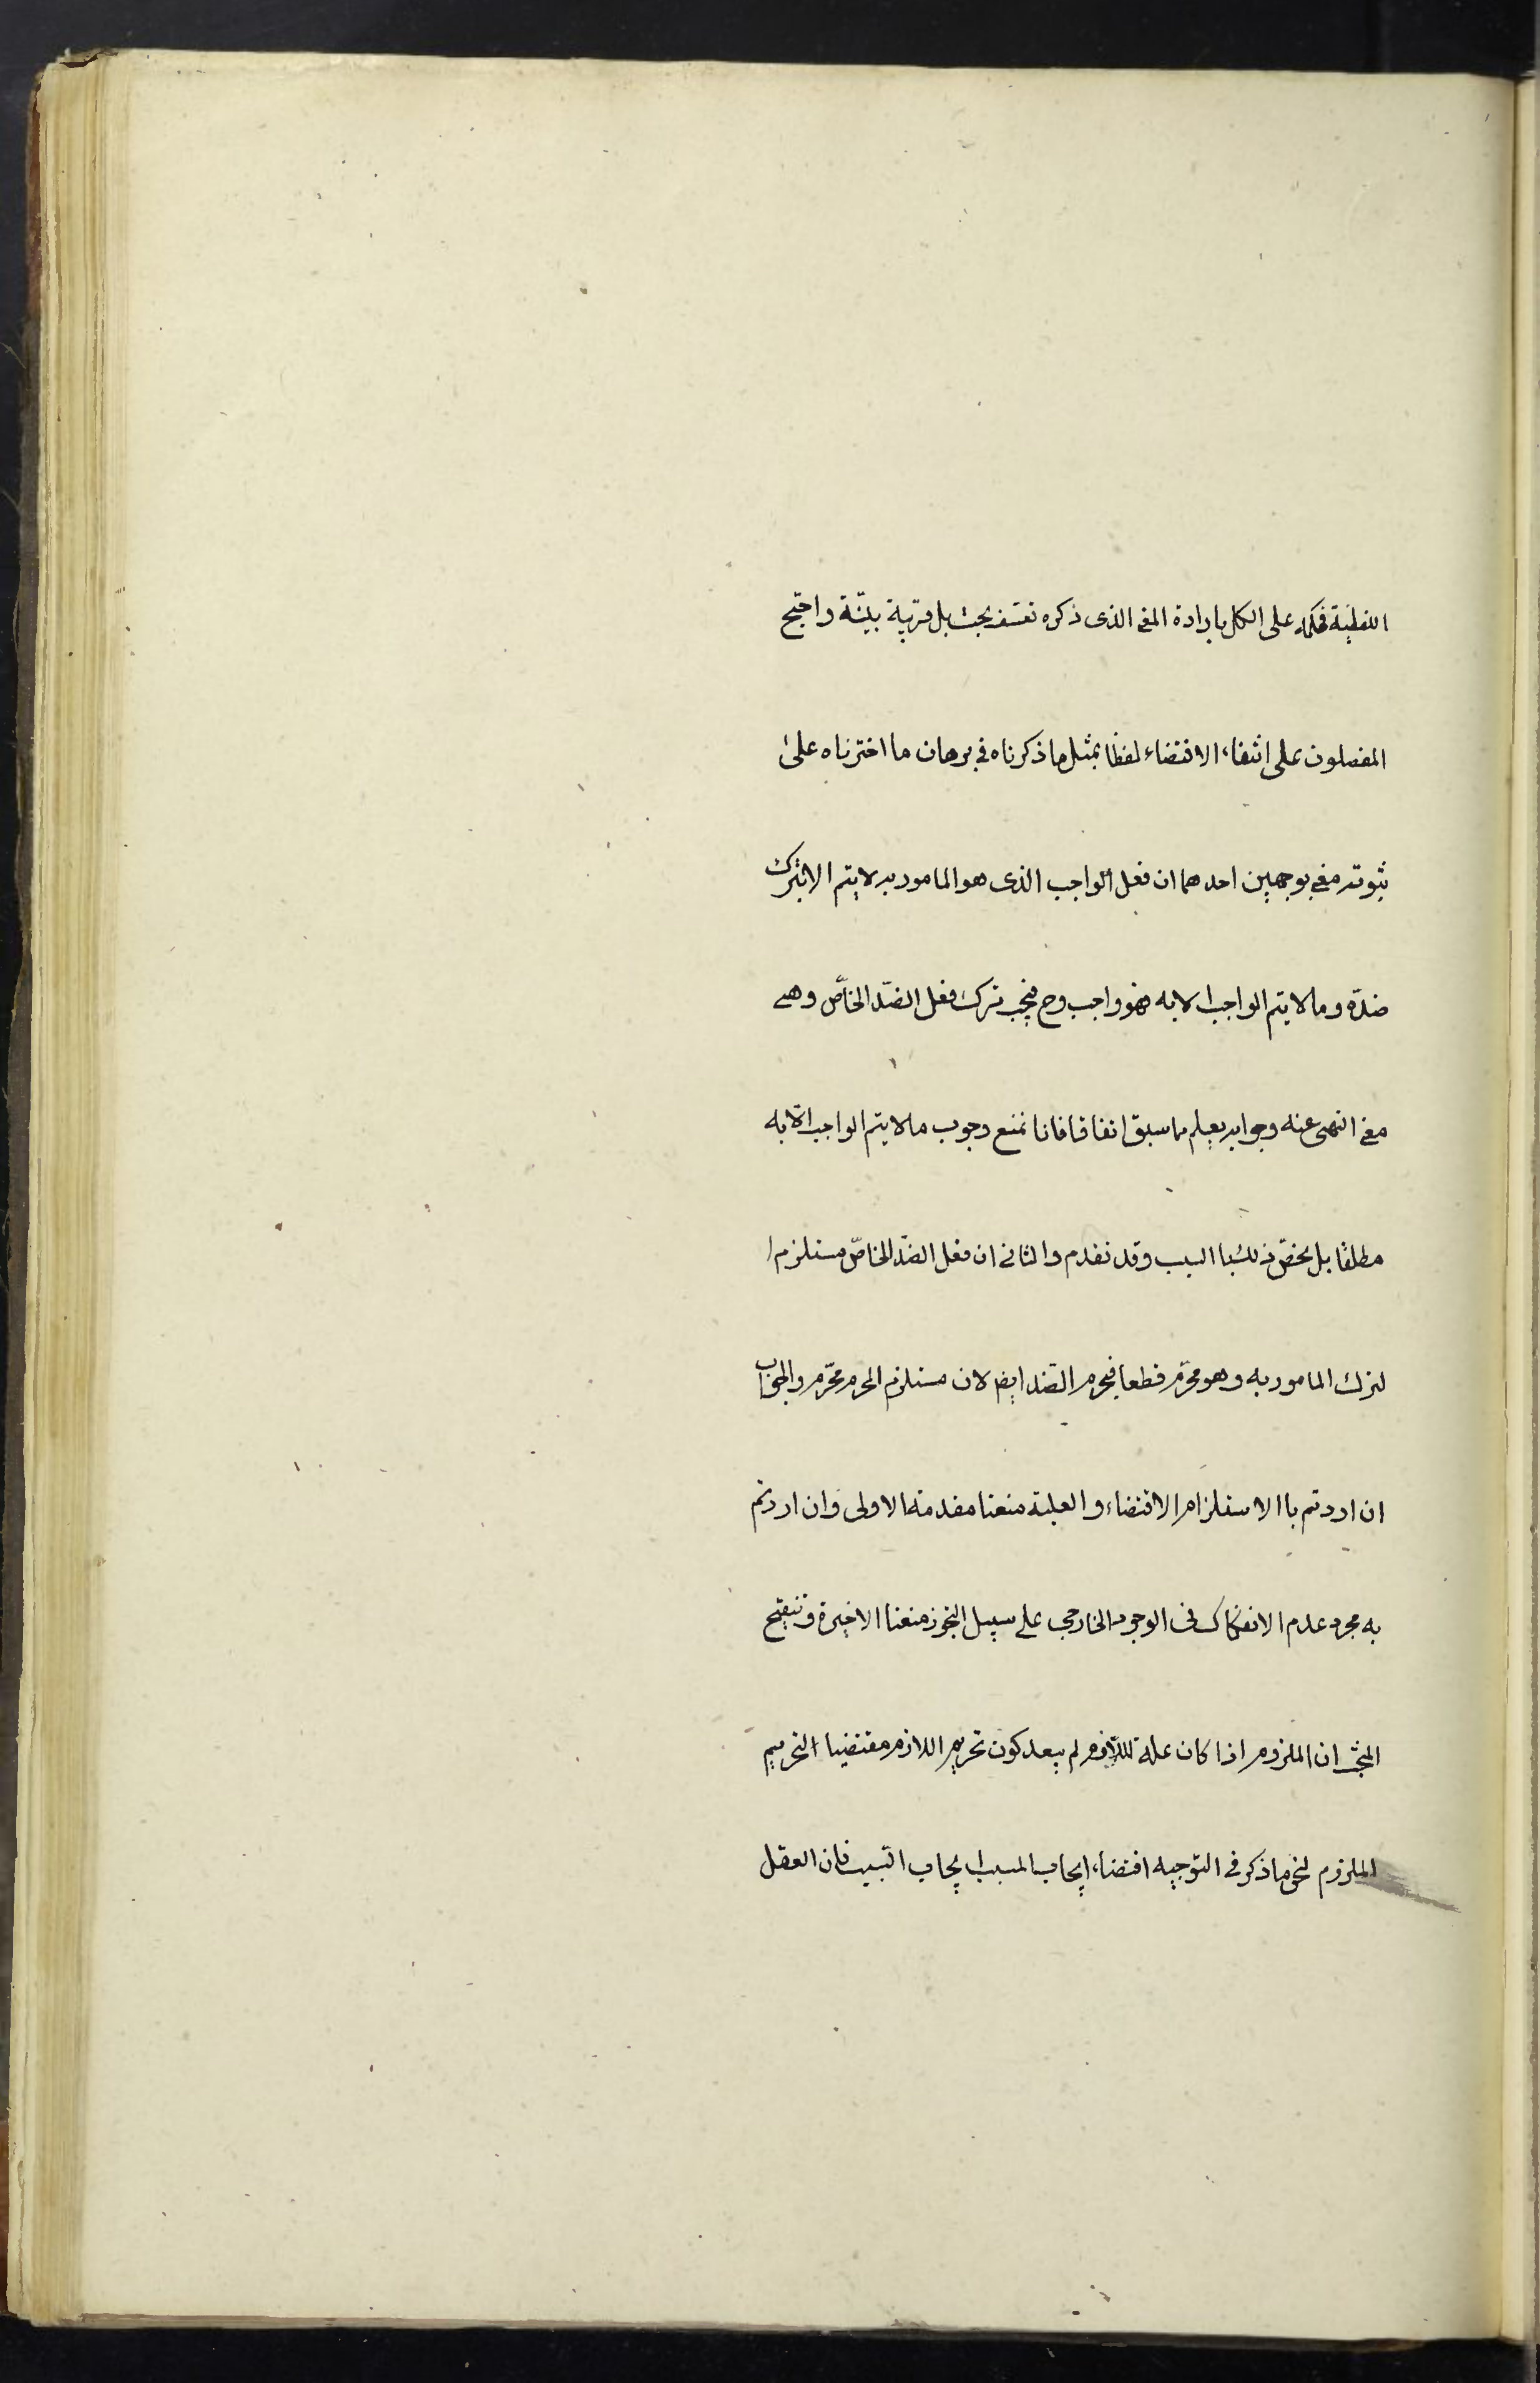 اللفظية فحكمه على الكل بارادة المعنى الذى ذكره تعسف بحت بل فرية بيّنة واحتج
المفصلون على انتفاء الاقتضاء لفظا بمثل ما ذكرناه في برهان ما اخترناه على
ثبوته معنى بوجهين احدهما ان فعل الواجب الذى هو المامور به لا يتم الا بترك
ضدّه وما لا يتم الواجب الا به فهو واجب وح فيجب ترك فعل الضدّ الخاصّ وهو
معنى النهى عنه وجوابه يعلم مما سبق انفا فانا نمنع وجوب ما لا يتم الواجب الّا به
مطلقا بل يختصّ ذلك با السبب وقد تقدم والثانى ان فعل الضدّ الخاصّ مستلزم ا
لترك المامور به وهو محرّم قطعا فيحرم الضد ايضا لان مستلزم المحرم محرّم والجواب
ان اردتم با الاستلزام الاقتضاء والعلية منعنا مقدمته الاولى وان اردتم
به مجرد عدم الانفكاك فى الوجود الخارجى على سبيل التجوز منعنا الاخيرة وتنقيح
المبحث ان الملزوم اذا كان علة للّازم لم يبعد كون تحريم اللازم مقتضيا التحريم
الملزوم لنحو ما ذكر فى التوجيه اقتضاء ايجاب المسبب ايجاب السّبب فان العقل